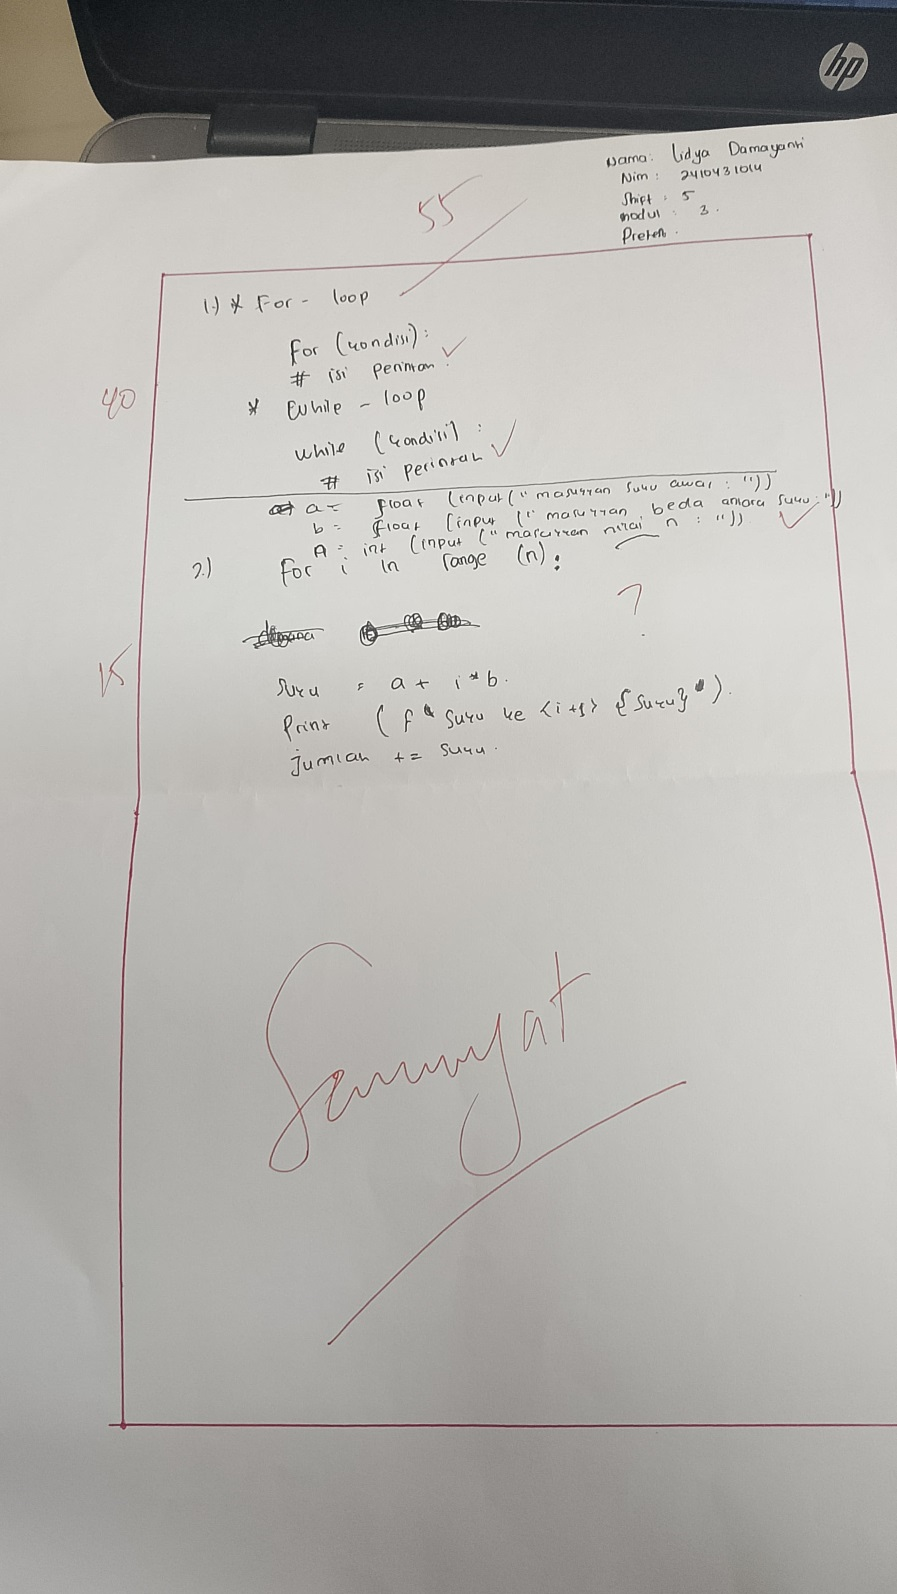 hp
Nama: Lidya Damayanti
Nim : 2410431014
Shift : 5
modul : 3.
55
1.) * For - loop
for (kondisi):
# isi perintah
40
* While - loop
while (kondisi) :
# isi perintah
a = float (input (" masukkan suku awal : "))
b = float (input (" masukkan beda antara suku : "))
A = int (input (" masukkan nilai n : "))
2.) for i in range (n):
?
15
suku = a + i * b.
Print ( f " suku ke <i+1> {suku} " ).
jumlah += suku.
Semangat